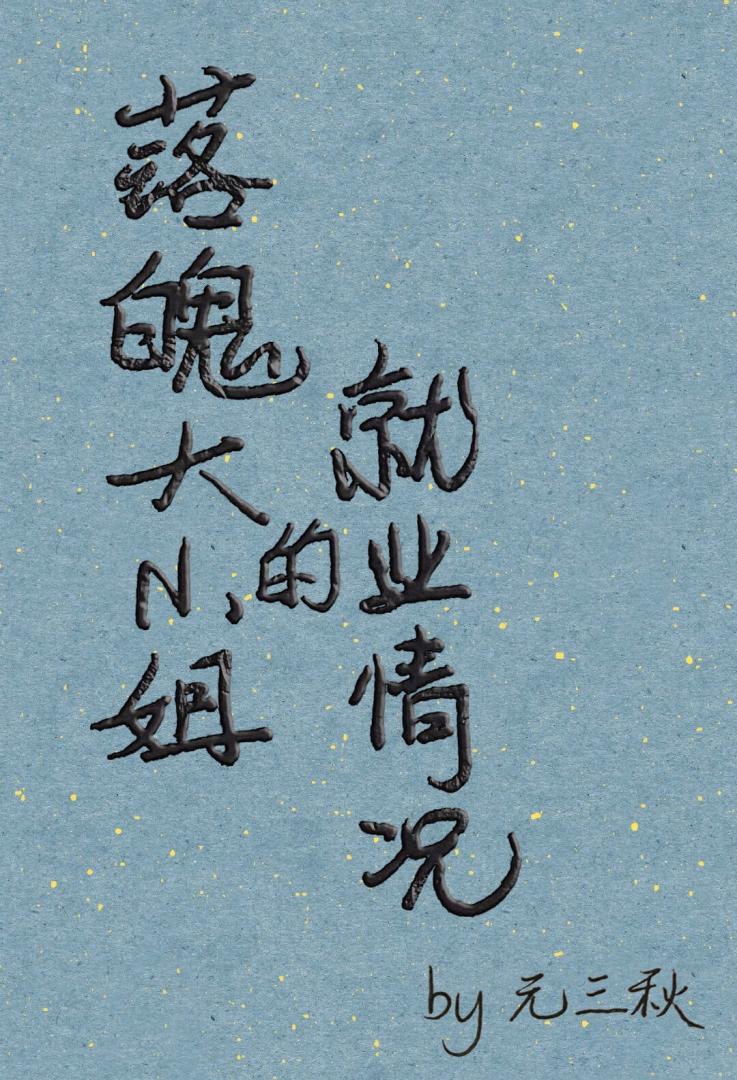 落魄大小姐
的
就业情况
by 元三秋